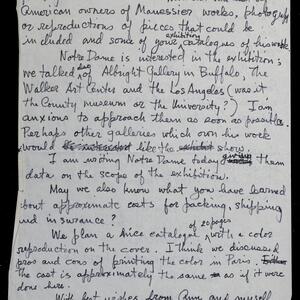 American owners of Manessier works, photographs
or reproductions of pieces that could be
exhibition
included and some of your catalogues of his work
Notre Dame is interested in the exhibition;
we talked of Albright Gallery in Buffalo, The
Walker Art Center and the Los Angeles (was it
the County museum or the University?) I am
anxious to approach them as soon as possible.
Perhaps other galleries which own his work
would like the show.
I am writing Notre Dame today giving them
data on the scope of the exhibition.
May we also know what you have learned
about approximate costs for packing, shipping
and insurance?
of 20 pages
We plan a nice catalogue with a color
reproduction on the cover. I think we discussed
pros and cons of printing the color in Paris.
The cost is approximately the same as if it were
done here.
With best wishes from Ann and myself